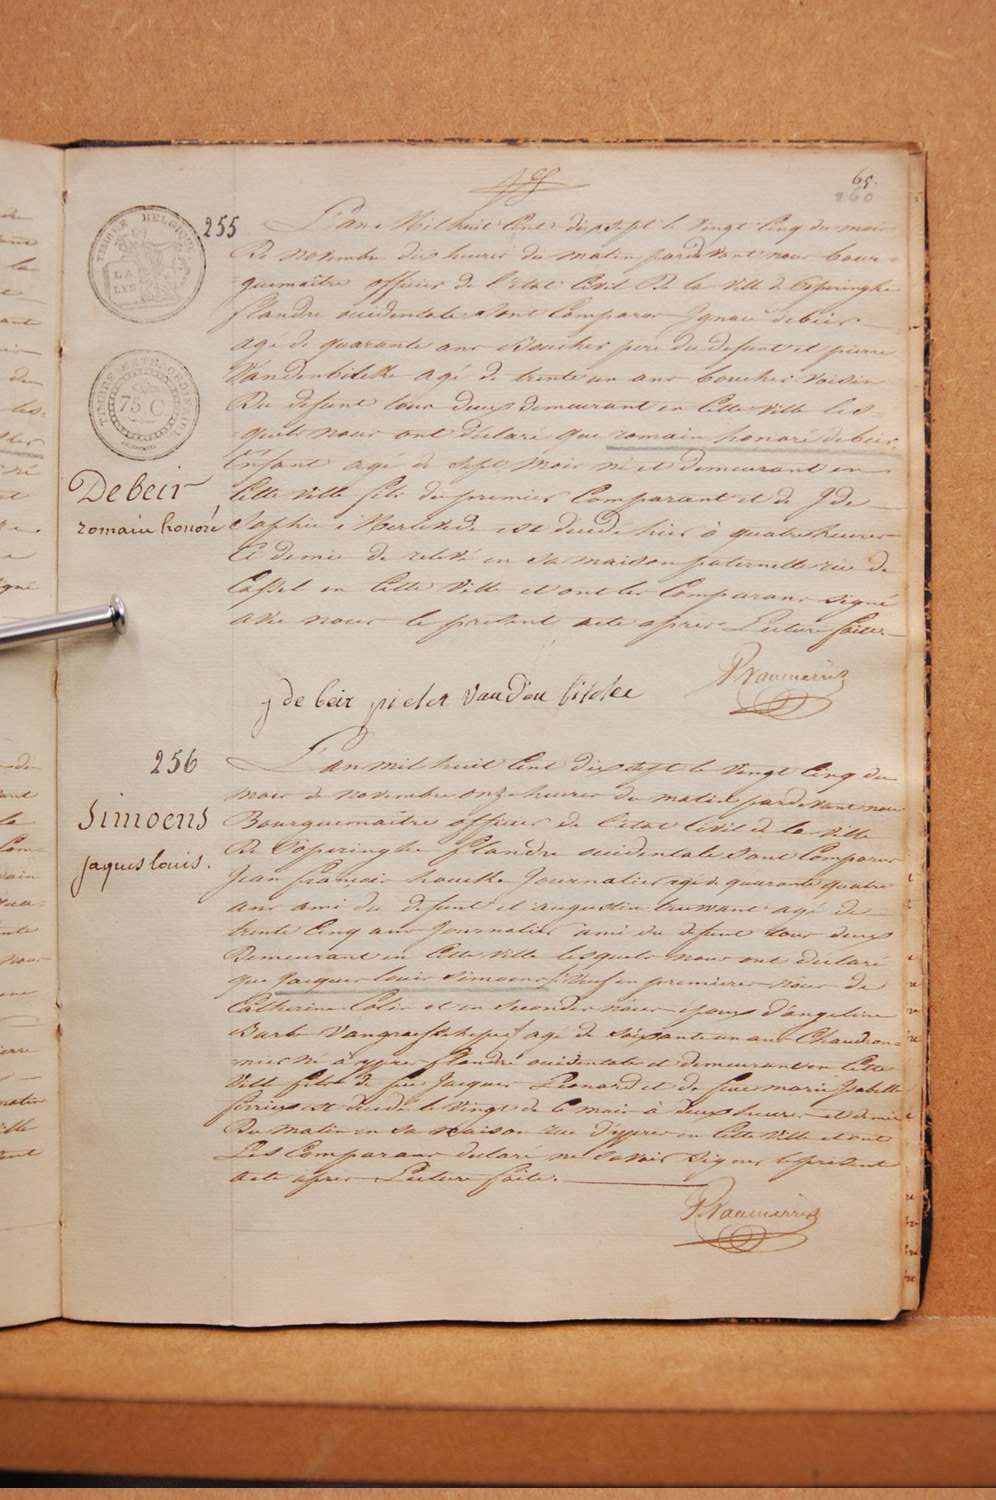 65.
260
TIMBRE BELGIQUE
LA LYS
TIMBRE EXTRAORDINAIRE
75 C.
255
L'an Mil huit Cent dix sept le vingt Cinq du mois
De novembre dix heures du matin pardevant nous bour-
guemaître officier de l'état Civil De la ville de Poperinghe
flandre occidentale sont Comparus Ignace debeir
agé de quarante ans Boucher pere du defunt et pierre
Vandenbilcke agé de trente un ans boucher voisin
Du defunt tous deux demeurant en Cette ville les-
quels nous ont déclaré que romain honoré debeir
Enfant agé de sept mois né et demeurant en
Cette ville fils du premier Comparant et de
Sophie est decedé hier à quatre heures
Et demie de relevé en sa maison paternelle rue de
Cassel en Cette ville et ont les Comparans signé
avec nous le present acte apres Lecture faite.
Debeir
romain honoré
j de beir pieter
256
L'an mil huit Cent dix sept le vingt Cinq du
mois de novembre onze heures du matin pardevant nous
Bourguemaître officier de l'état Civil de la ville
De Poperinghe flandre occidentale sont Comparus
Jean francois houcke Journalier agé de quarante quatre
ans ami du defunt et augustin truwant agé de
trente Cinq ans Journalier ami du defunt tous deux
Demeurant en Cette ville lesquels nous ont déclaré
que Jacques louis Simoens Veuf en premieres nôces de
Catherine Colin et en secondes nôces époux d'angeline
Barbe agé de soixante un ans Chaudron-
nier né à ypres flandre occidentale et demeurant en Cette
Ville fils de feu Jacques Léonard et de feue marie Isabelle
est decedé le vingt de Ce mois à deux heures et demie
Du matin en sa maison rue d'ypres en Cette ville et ont
Les Comparans declaré ne savoir signer le present
acte apres Lecture faite.
Simoens
jaques louis.